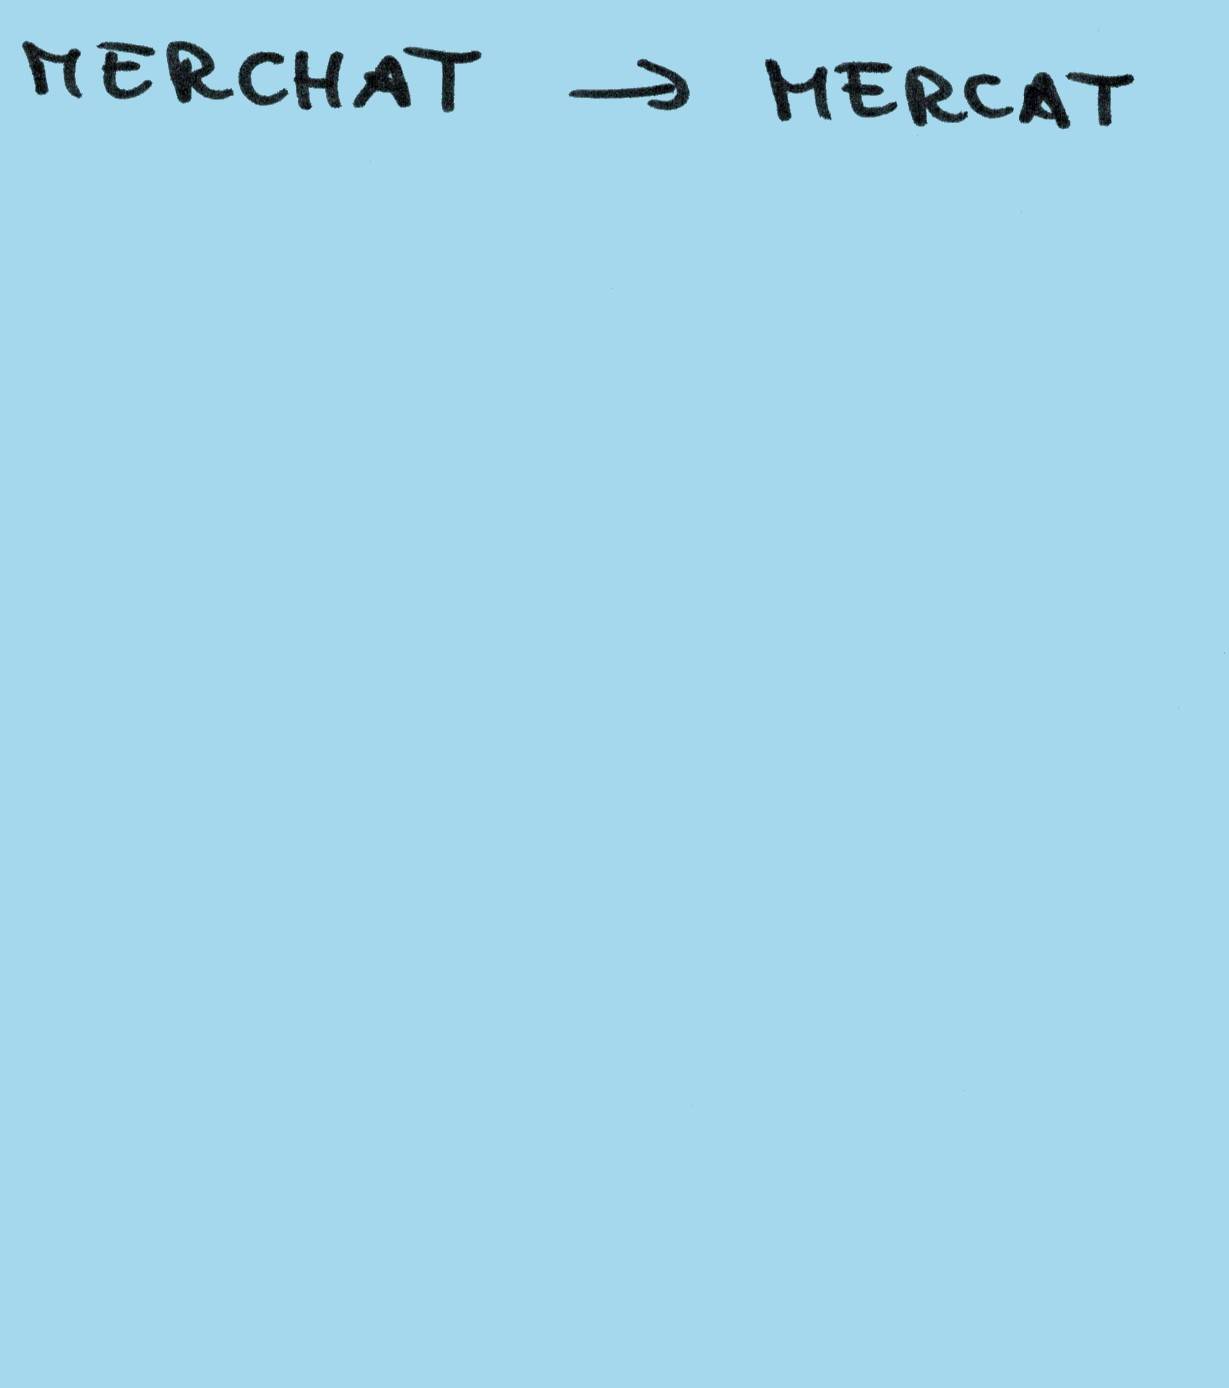 MERCHAT → MERCAT